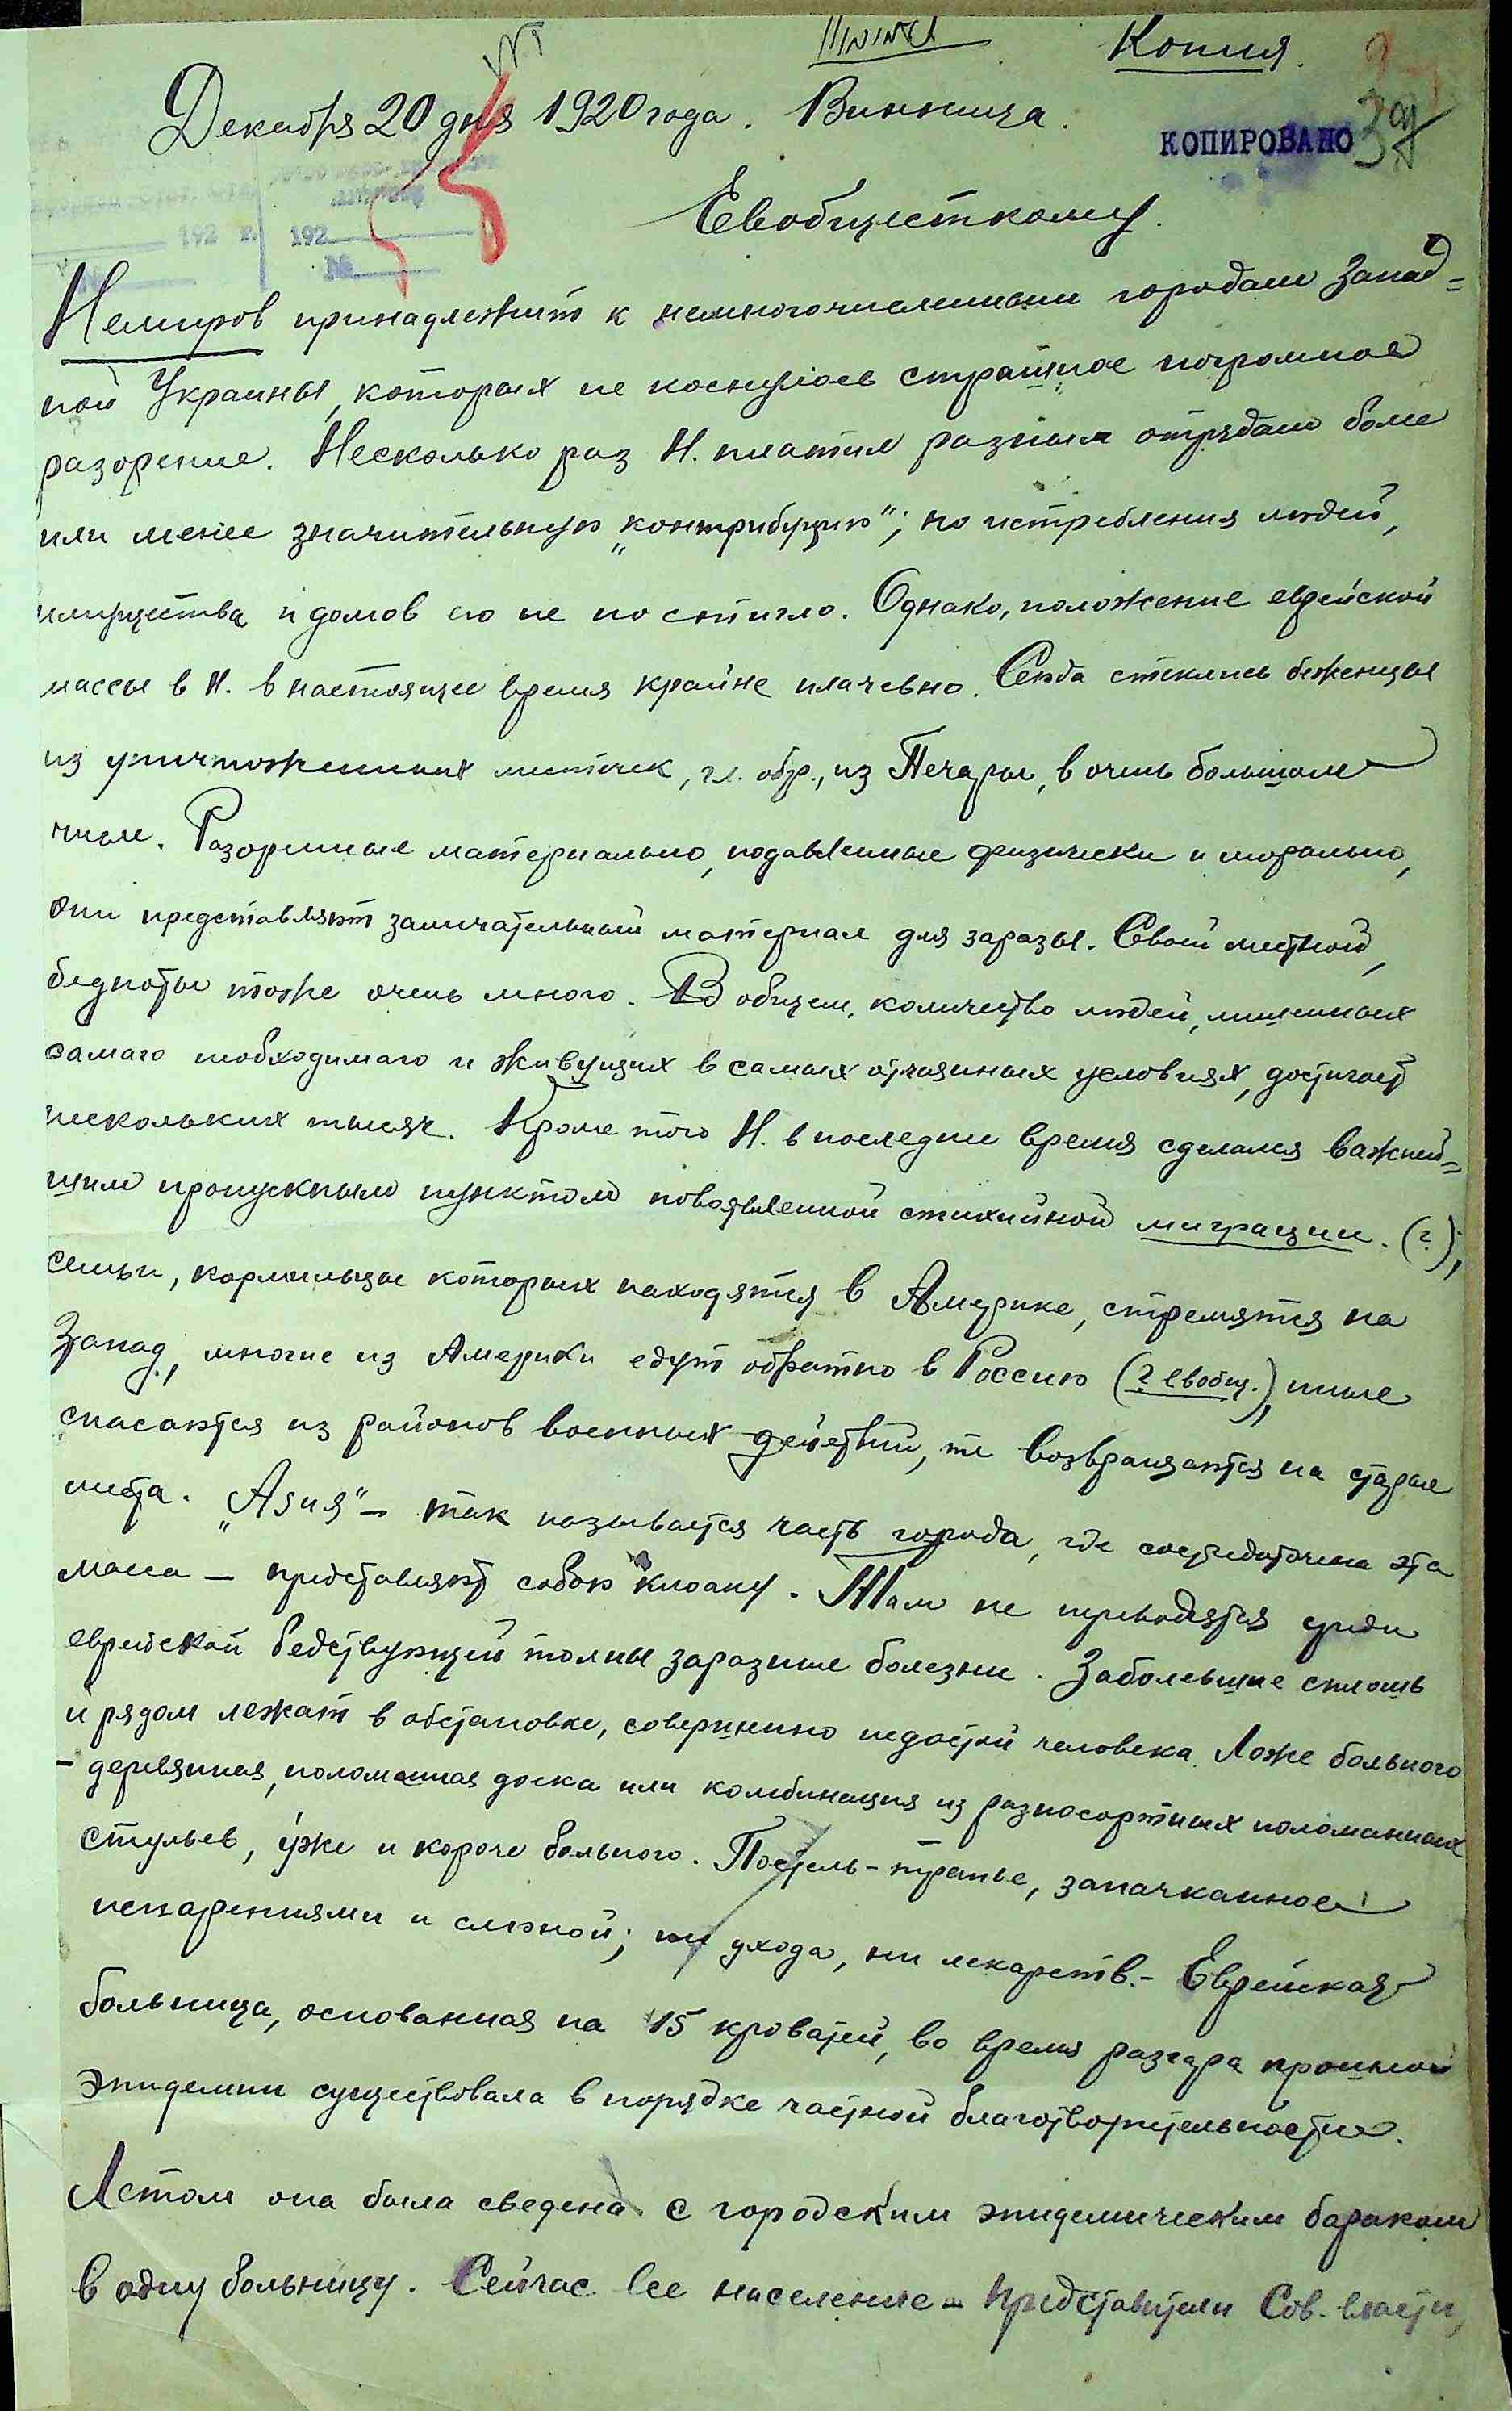 Копия.
Декабря 20 дня 1920 года. Винница.
КОПИРОВАНО
192 г. 192
№
Евобщесткому.
Немиров принадлежит к немногочисленным городам Запад=
ной Украины, которых не коснулось страшное погромное
разорение. Несколько раз Н. платил разным отрядам более
или менее значительную „контрибуцию"; но истребления людей,
имущества и домов его не постигло. Однако, положение еврейской
массы в Н. в настоящее время крайне плачевно. Сюда стеклись беженцы
из уничтоженных местечек, гл. обр., из Печары, в очень большом
числе. Разоренные материально, подавленные физически и морально,
они представляют замечательный материал для заразы. Своей местной,
бедноты тоже очень много. В общем, количество людей, лишенных
самаго необходимаго и живущих в самых отчаянных условиях, достигает
нескольких тысяч. Кроме того Н. в последнее время сделался важней=
шим пропускным пунктом новоявленной стихийной миграции. (?);
семьи, кормильцы которых находятся в Америке, стремятся на
Запад, многие из Америки едут обратно в Россию (? евобщ.), иные
спасаются из районов военных действий, те возвращаются на старые
места. „Азия" – так называется часть города, где сосредоточена эта
масса – представляют собою клоаку. Там не переводятся среди
еврейской бедствующей толпы заразные болезни. Заболевшие сплошь
и рядом лежат в обстановке, совершенно недостой человека. Ложе больного
– деревянная, поломанная доска или комбинация из разносортных поломанных
стульев, у́же и короче больного. Постель – тряпье, запачканное
испарениями и слюной; ни ухода, ни лекарств. – Еврейская
больница, основанная на 15 кроватей, во время разгара прошлой
эпидемии существовала в порядке частной благотворительности.
Летом она была сведена с городским эпидемическим бараком
в одну больницу. Сейчас все население – представители Сов. власти,